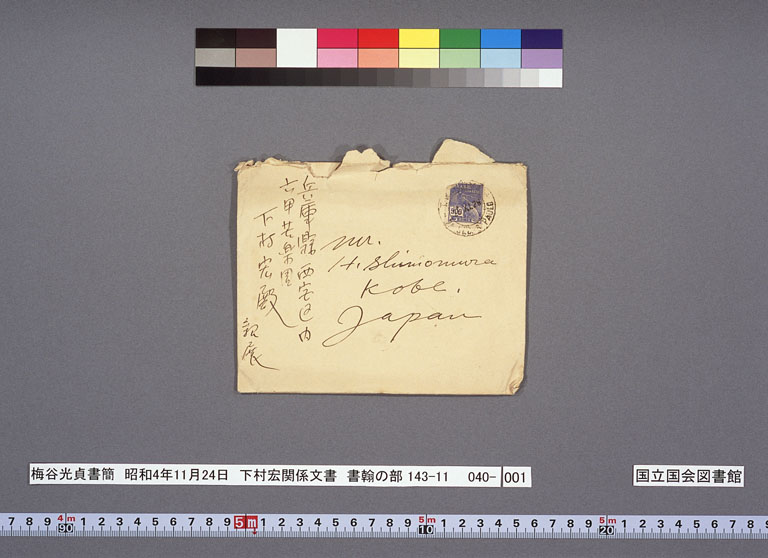 兵庫縣
六甲苦楽園
下村宏殿
親展
Mr.
H. Shimomura
Kobe.
Japan
300
梅谷光貞書簡 昭和4年11月24日 下村宏関係文書 書翰の部 143-11 040- 001
国立国会図書館
7 8 9 4m 90 1 2 3 4 5 6 7 8 9 5m 1 2 3 4 5 6 7 8 9 5m 10 1 2 3 4 5 6 7 8 9 5m 20 1 2 3 4 5 6 7 8 9